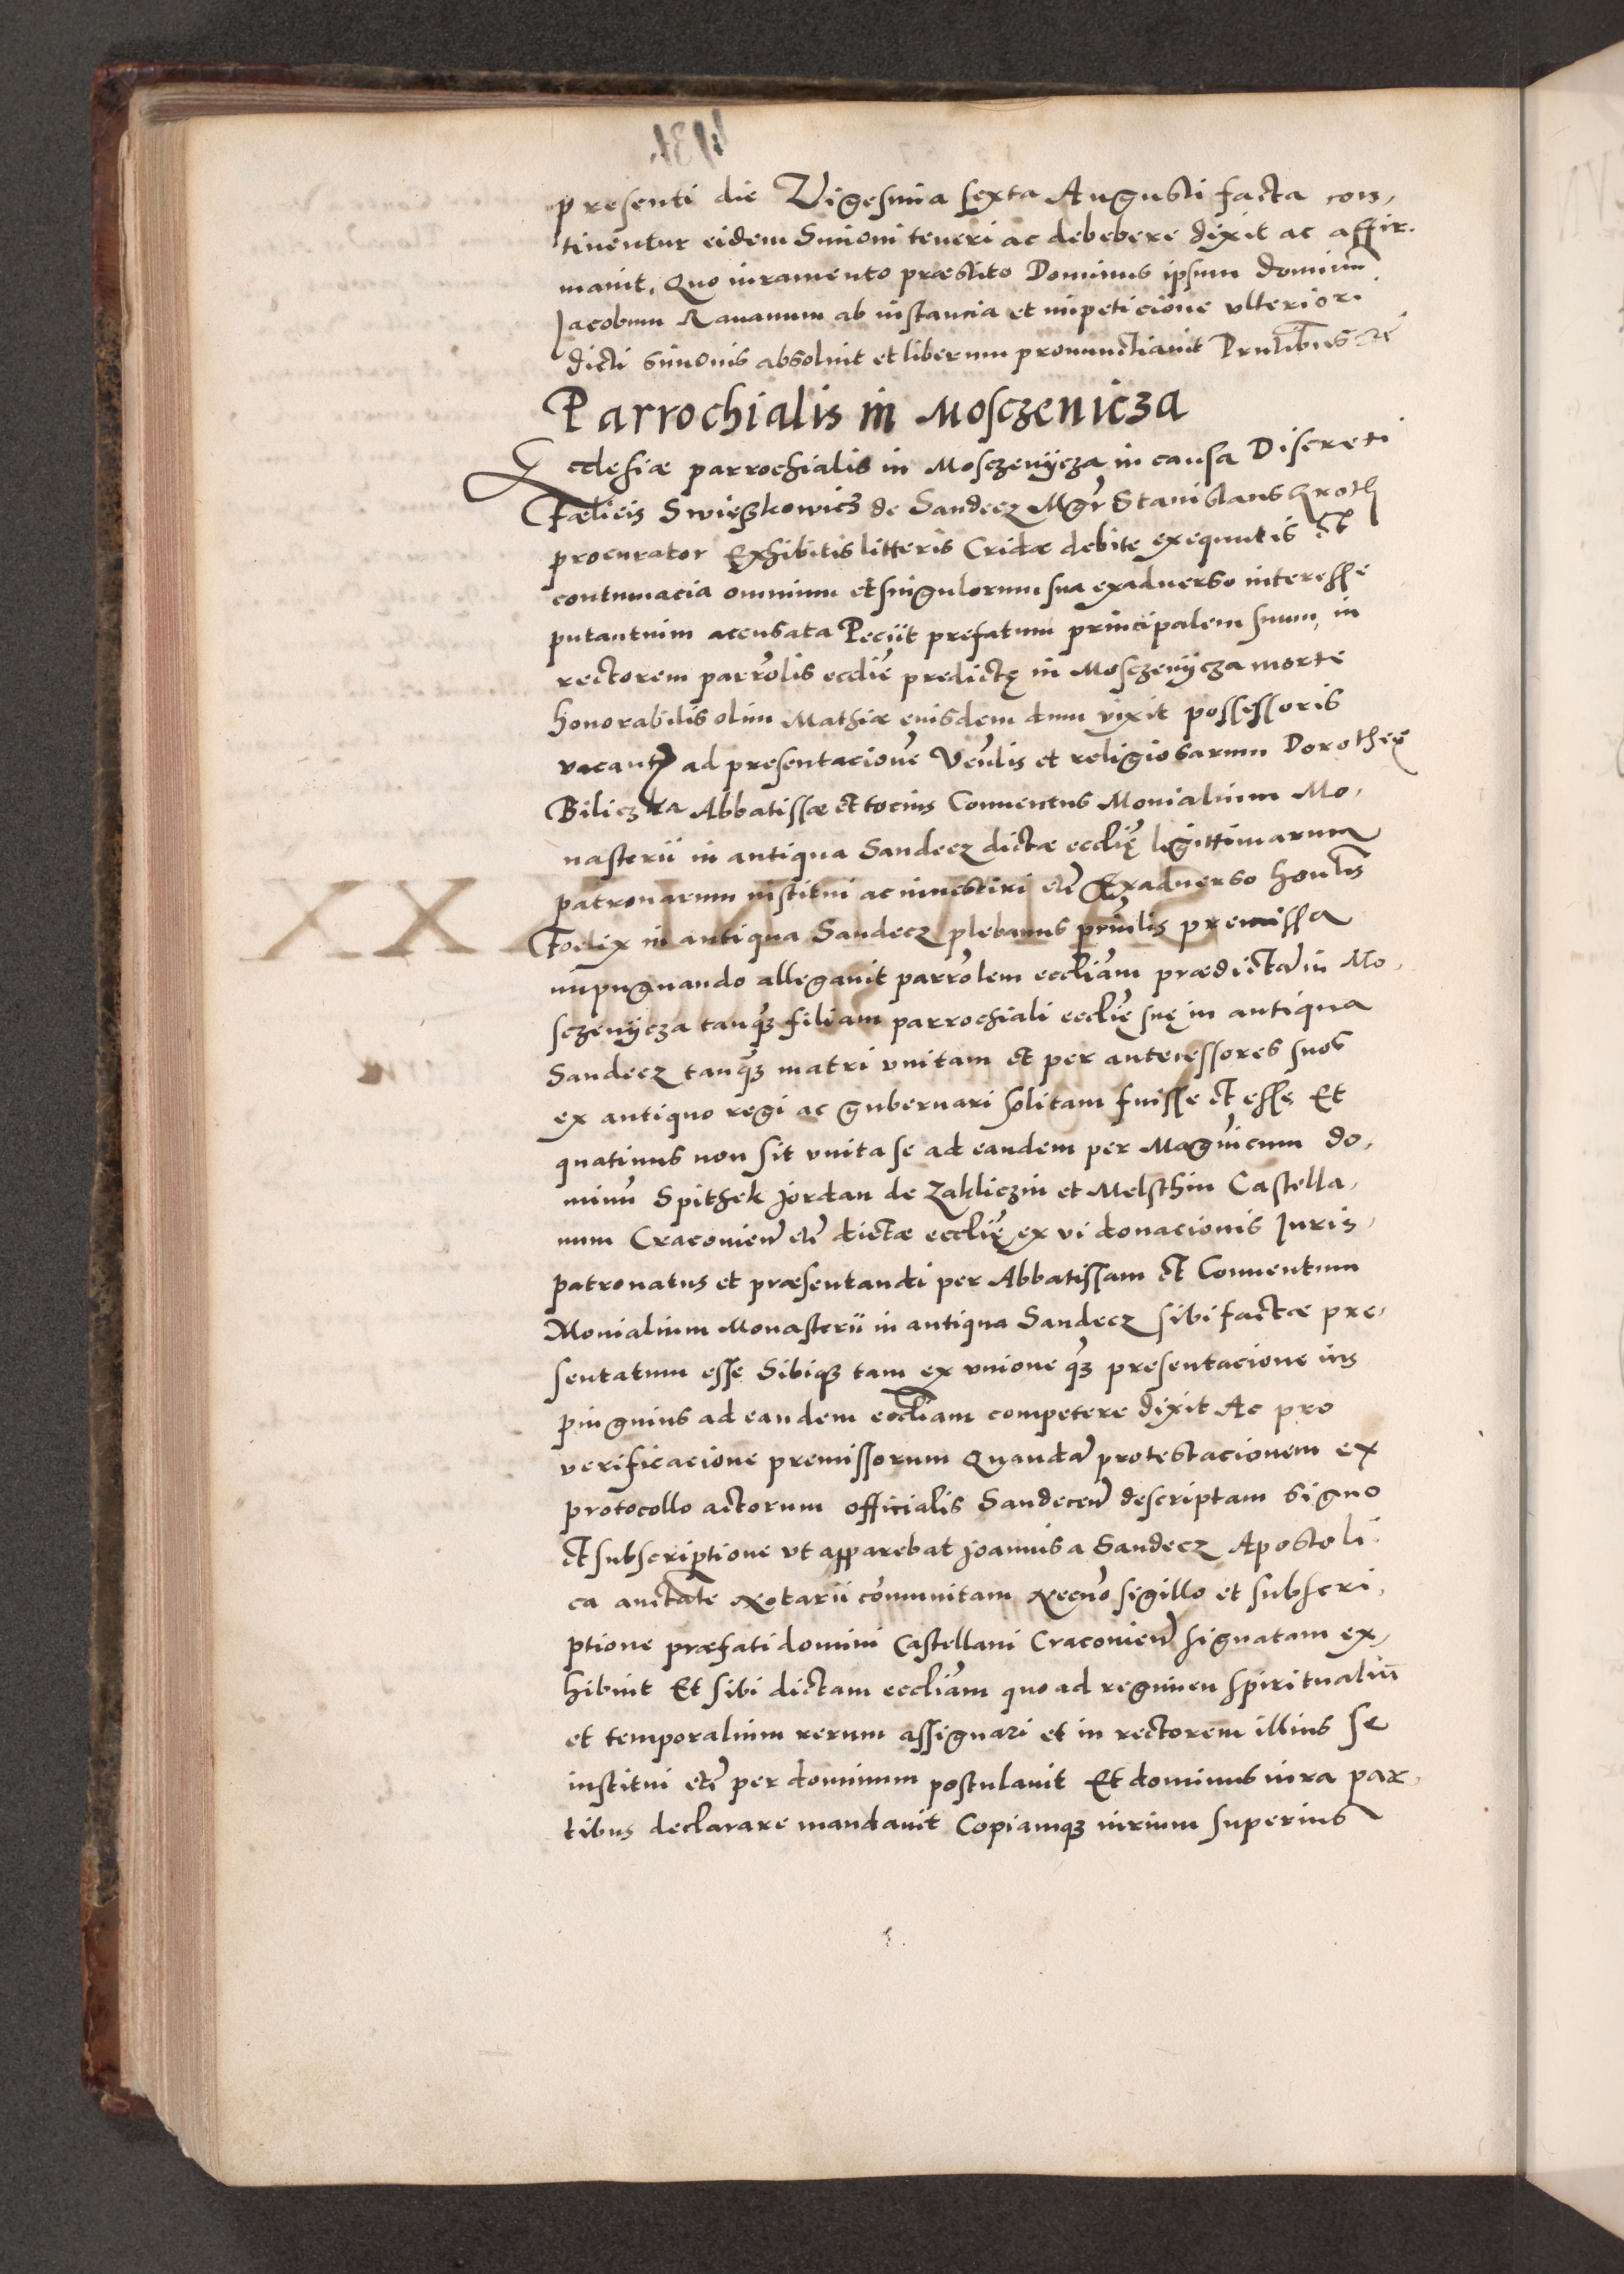 presenti die Vigesima sexta Augusti facta con,
tinentur eidem Simoni teneri ac debebere dixit ac affir.
mavit. Quo iuramento præstito Dominus ipsum dominũ
Jacobum Ravanum ab instancia et impeticione ulteriori
dicti Simonis absolvit et liberum pronunctiavit Pñtibus etc̃
Parrochialis in Mosczenicza
Ecclesiæ parrochialis in Mosczenycza in causa Discreti
Fœlicis Swieszkowicz de Sandecz Mgr̃ Stanislaus Kroth
procurator Exhibitis litteris Cridæ debite exequutis et
contumacia omnium et singulorum sua exadverso interesse
putantium accusata Peciit prefatum principalem suum, in
rectorem parrolis̃ ecclie᷑ predictę in Mosczenycza morte
honorabilis olim Mathiæ eiusdem dum vixit possessoris
vacanteʒ ad presentacionẽ Venlis̃ et religiosarum Dorotheę
Biliczka Abbatissæ et tocius Conventus Monialium Mo,
nasterii in antiqua Sandecz dictæ ecclię̃ legittimarum
patronarum institui ac investiri etc̃ Exadverso honlis̃
Fœlix in antiqua Sandecz plebanus prinlis̃ premissa
impugnando allegavit parrolem̃ eccliam̃ prædictã in Mo,
sczenycza tanqʒ filiam parrochiali ecclię̃ suę in antiqua
Sandecz tanqʒ matri unitam et per antecessores suos
ex antiquo regi ac gubernari solitam fuisse et esse Et
quatinus non sit unita se ad eandem per Magnicum̃ do,
minũ Spithek Jordan de Zakliczin et Melsthin Castella,
num Cracovieñ etc̃ dictæ ecclię̃ ex vi donacionis Juris,
patronatus et præsentandi per Abbatissam et Conventum
Monialium Monasterii in antiqua Sandecz sibi factæ pre,
sentatum esse Sibiqʒ tam ex unione qʒ presentacione ius
pinguius ad eandem eccliam̃ competere dixit Ac pro
verificacione premissorum Quandã protestacionem ex
protocollo actorum officialis Sandeceñ descriptam signo
et subscriptione ut apparebat Joannis a Sandecz Apostoli,
ca auctate̅ Notarii cõmunitam Necnõ sigillo et subscri,
ptione præfati domini Castellani Cracovieñ signatam ex,
hibuit Et sibi dictam eccliam̃ quo ad regimen spiritualiũ
et temporalium rerum assignari et in rectorem illius se
institui etc̃ per dominum postulavit Et dominus iura par,
tibus declarare mandavit Copiamqʒ iurium superius